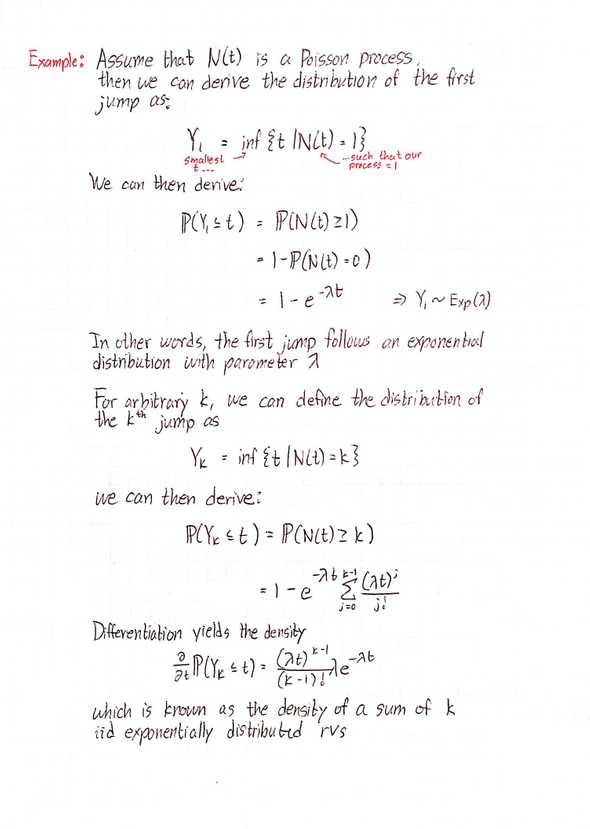 Example: Assume that N(t) is a Poisson process,
then we can derive the distribution of the first
jump as:
Y₁ = inf {t | N(t) = 1}
smallest t... ...such that our process = 1
We can then derive:
ℙ(Y₁ ≤ t) = ℙ(N(t) ≥ 1)
= 1 - ℙ(N(t) = 0)
= 1 - e^{-λt} ⇒ Y₁ ~ Exp(λ)
In other words, the first jump follows an exponential
distribution with parameter λ
For arbitrary k, we can define the distribution of
the kᵗʰ jump as
Yₖ = inf {t | N(t) = k}
we can then derive:
ℙ(Yₖ ≤ t) = ℙ(N(t) ≥ k)
= 1 - e^{-λt} ∑_{j=0}^{k-1} (λt)^j / j!
Differentiation yields the density
∂/∂t ℙ(Yₖ ≤ t) = (λt)^{k-1} / (k-1)! λe^{-λt}
which is known as the density of a sum of k
iid exponentially distributed rvs